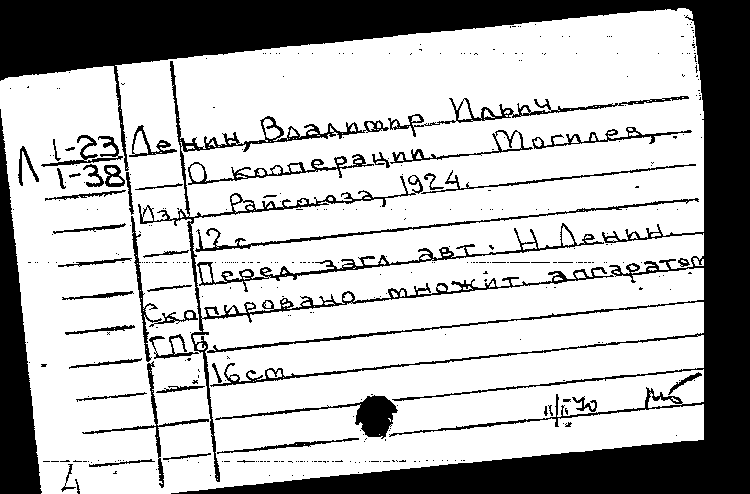 Л 1-23
1-38
Ленин, Владимир Ильич.
О кооперации. Могилев,
Изд. Райсоюза, 1924.
12 с.
Перед загл. авт.: Н. Ленин.
Скопировано множит. аппаратом
ГПБ.
16 см.
II/II-70
4